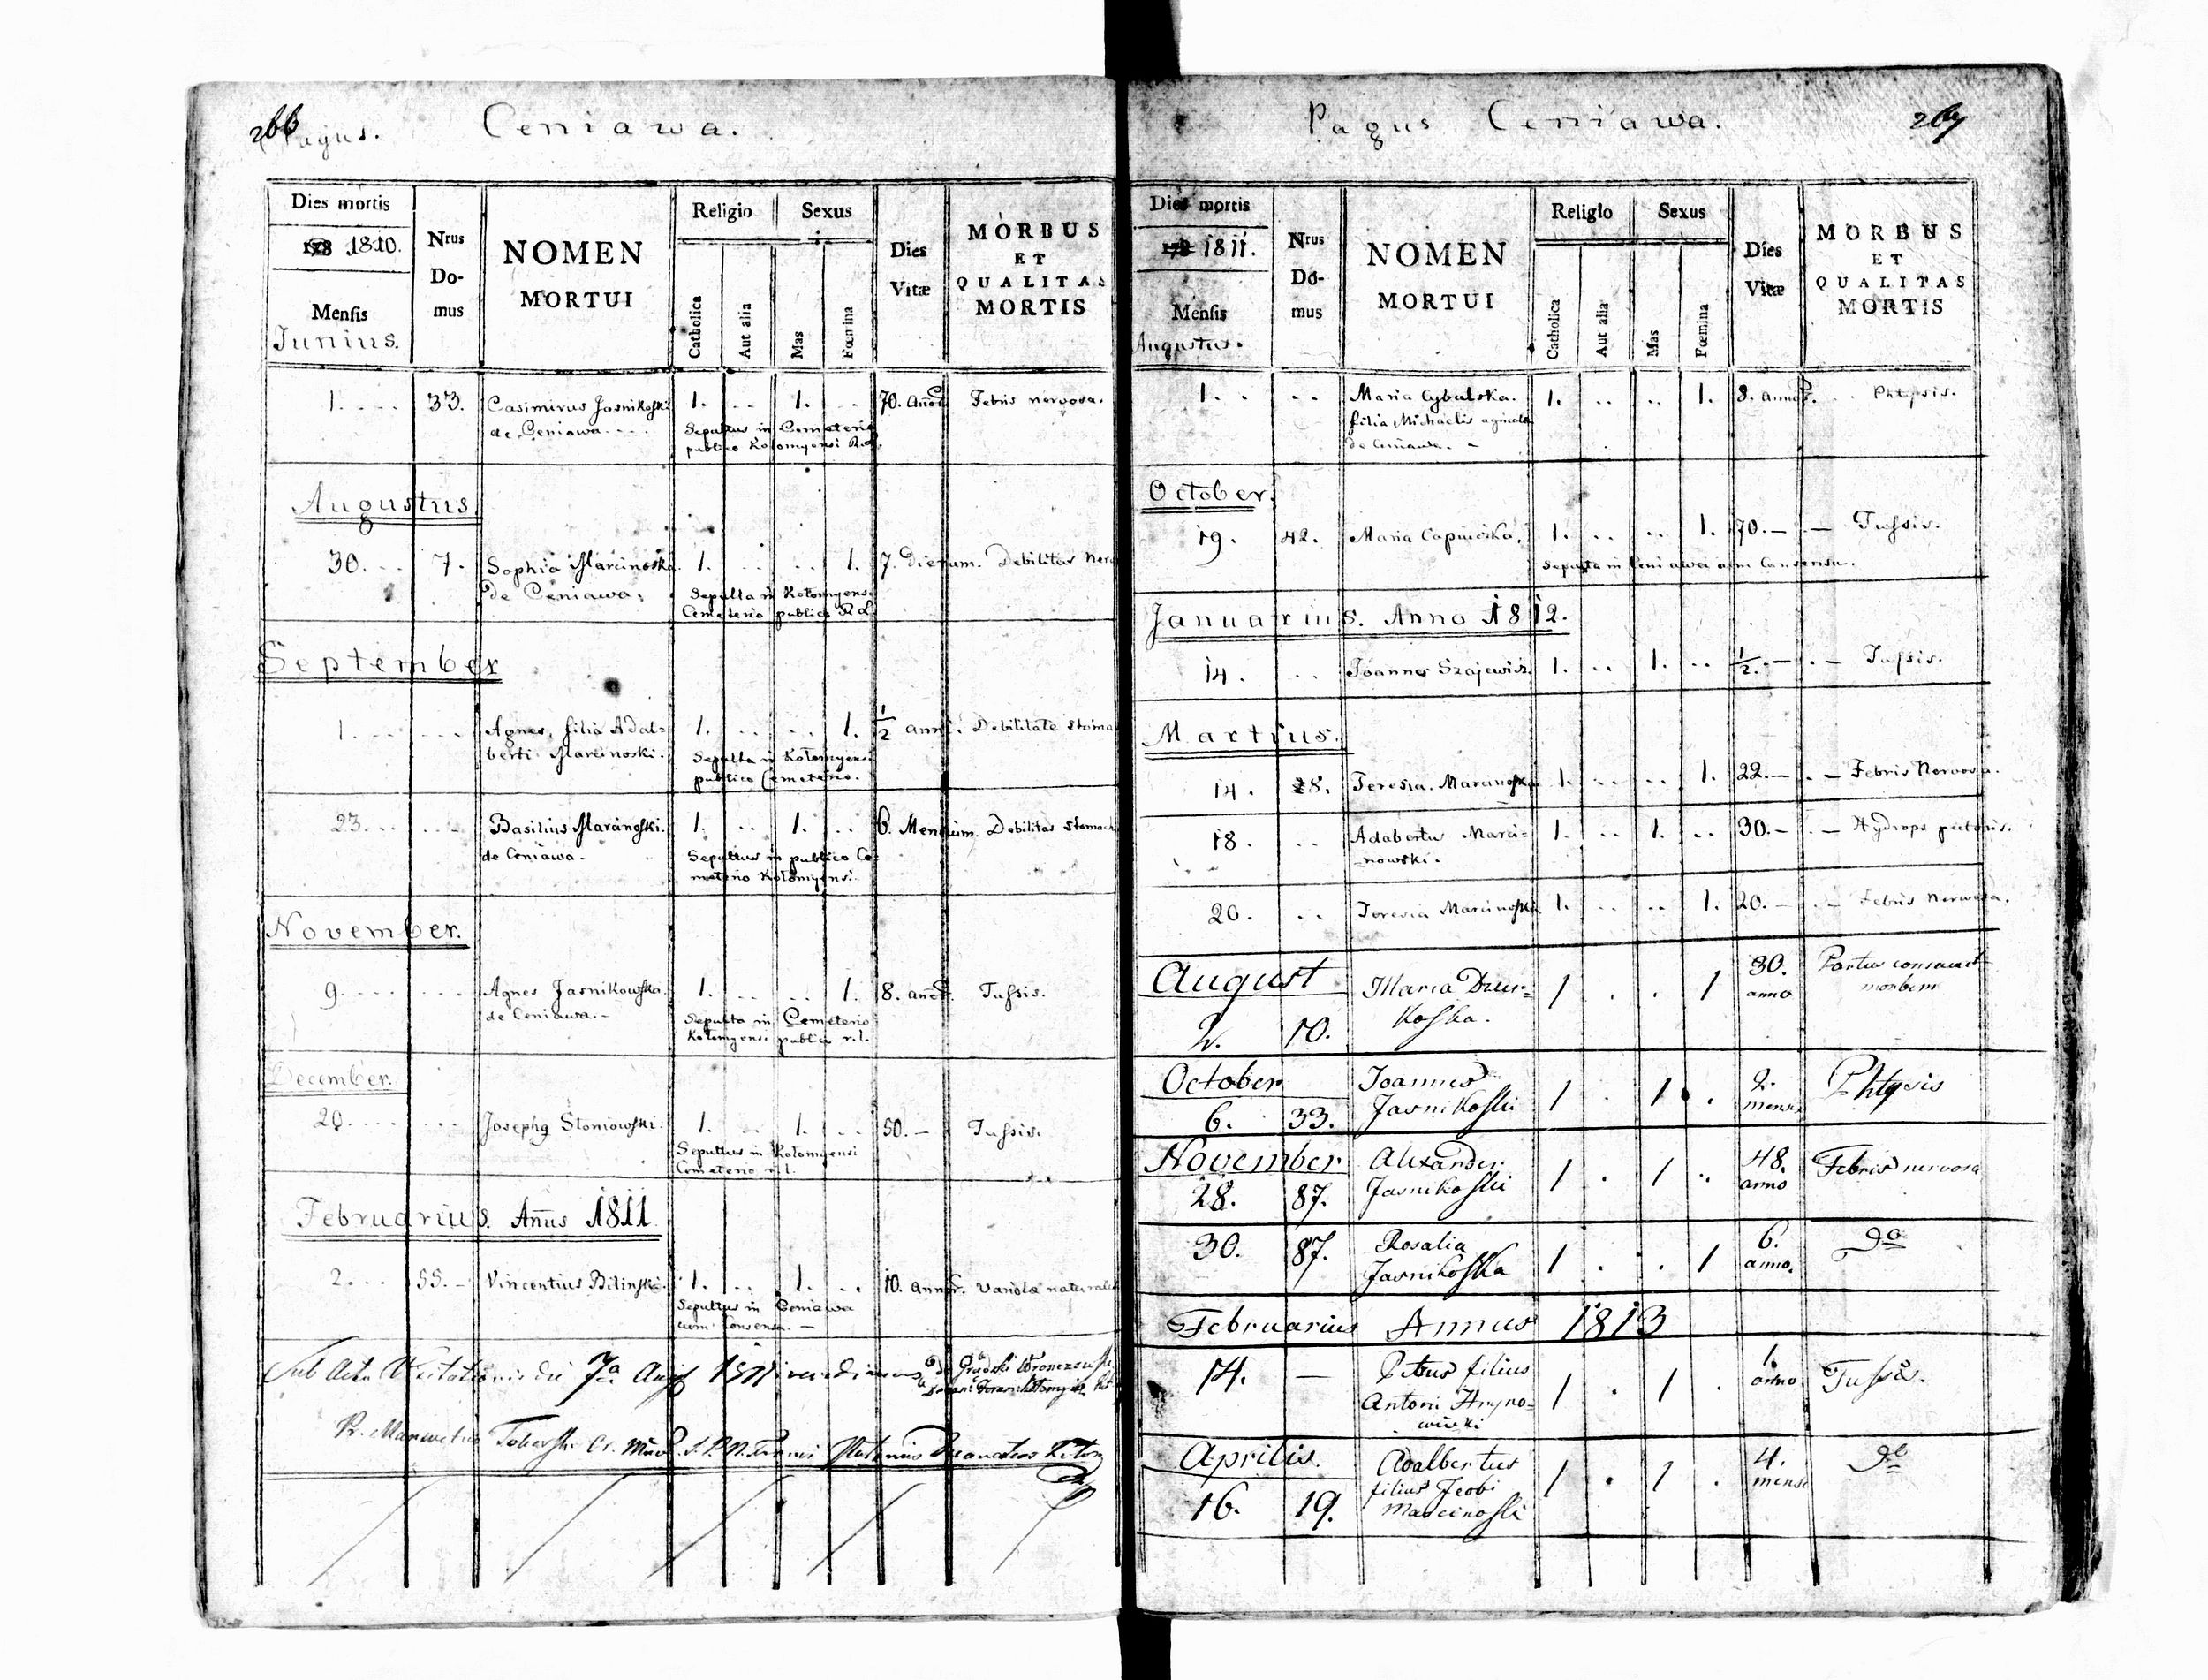 266
Pagus. Ceniawa.
Dies mortis
1810.
Mensis
Junius.
Nrus
Do-
mus
NOMEN
MORTUI
Religio
Catholica
Aut alia
Sexus
Mas
Fœmina
Dies
Vitæ
MORBUS
ET
QUALITAS
MORTIS
1. 33. Casimirus Jasnikoski 1. .. 1. .. 70. Febris nervosa.
de Ceniawa. Sepultus in Cemeterio
publico Kołomyensi
Augustus.
30. 7. Sophia Marcinoska 1. .. .. 1. 7. Dierum. Debilitas
de Ceniawa. Sepulta in Kołomyensi
Cemeterio publico
September
1. Agnes, filia Adal= 1. .. .. 1. 1/2 anni. Debilitate
berti Marcinoski. Sepulta in Kołomyensi
publico Cemeterio.
23. Basilius Marcinoski. 1. .. 1. .. 6. Mensium. Debilitas
de Ceniawa. Sepultus in publico Ce=
meterio Kołomyensi.
November.
9. Agnes Jasnikowska. 1. .. .. 1. 8. Tussis.
de Ceniawa. Sepulta in Cemeterio
Kołomyensi publico r. l.
December.
20. Josephg Słoniowski. 1. .. 1. .. 50. – Tussis.
Sepultus in Kołomyensi
Cemeterio r. l.
Februarius. Añus 1811.
2. 55. Vincentius Bilinski. 1. .. 1. .. 10. Variolæ
Sepultus in Ceniawa
cum Consensu. –
Sub Actu Visitationis 7a Aug 1811
267
Pagus Ceniawa.
Dies mortis
1811.
Mensis
Augustus.
Nrus
Do-
mus
NOMEN
MORTUI
Religio
Catholica
Aut alia
Sexus
Mas
Fœmina
Dies
Vitæ
MORBUS
ET
QUALITAS
MORTIS
1. .. Maria Cybulska. 1. .. .. 1. 8.
filia Michaelis agricolæ
de Ceniawa. –
October.
19. 42. Maria 1. .. .. 1. 70. – Tussis.
Sepulta in Ceniawa cum Consensu.
Januarius. Anno 1812.
14. .. Joannes Szajewicz 1. .. 1. .. 1/2. – Tussis.
Martius.
14. 28. Teresia Marcinoska 1. .. .. 1. 22. – Febris Nervosa.
18. .. Adabertus Marci= 1. .. 1. .. 30. – Hydrops pectoris.
=nowski.
20. .. Teresia Marcinoska 1. .. .. 1. 20. – Febris Nervosa.
August
2. 10. Maria 1 . . 1 30.
anno
October
6. 33. Joannes 1 . 1 . 2. Phtysis
Jasnikoski
November
28. 87. Alexander 1 . 1 .. 48. Febris nervosa
Jasnikoski anno
30. 87. Rosalia 1 . . 1 6. do
Jasnikoska anno.
Februarius Annus 1813
14. – Petrus filius 1 . 1 . 1. Tussis.
Antoni Hryno= anno
wiecki
Aprilis.
16. 19. Adalbertus 1 . 1 . 4. do
filius Jcobi
Marcinoski